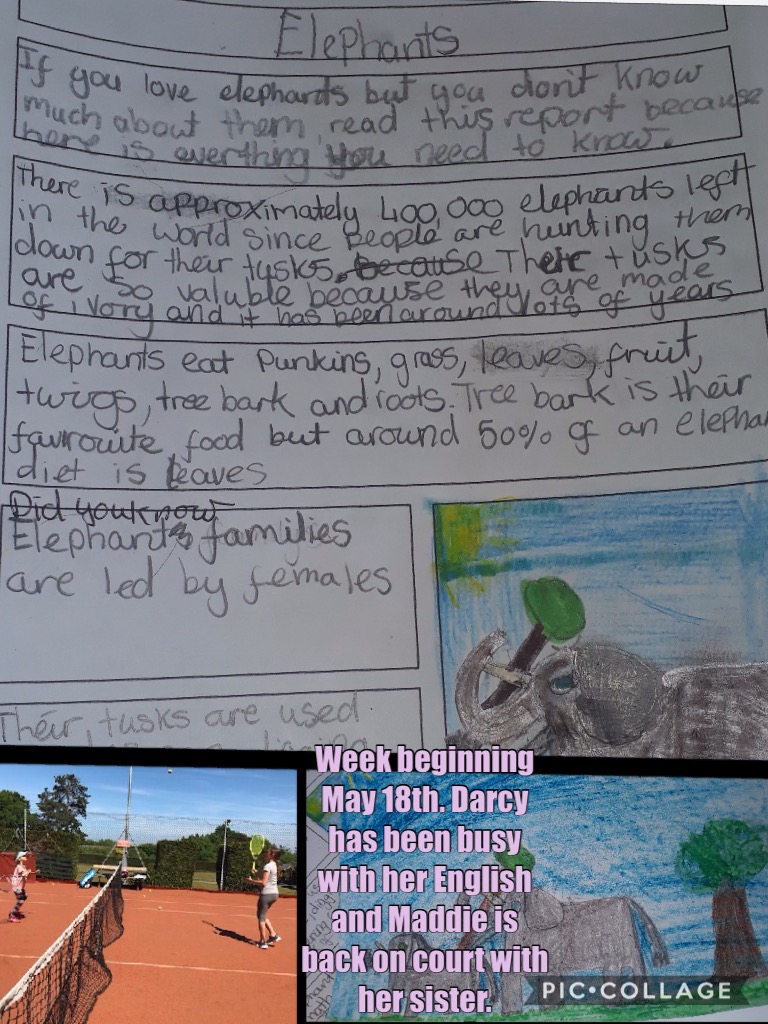 Elephants
If you love elephants but you don't know
much about them read this report because
here is everthing you need to know.
There is approximately 400,000 elephants left
in the world since people are hunting them
down for their tusks. because Their tusks
are so valuble because they are made
of ivory and it has been around lots of years
Elephants eat Punkins, grass, leaves, fruit,
twigs, tree bark and roots. Tree bark is their
favrouite food but around 50% of an elephan
diet is leaves
Did you know
Elephants families
are led by females
Their tusks are used
Week beginning
May 18th. Darcy
has been busy
with her English
and Maddie is
back on court with
her sister.
PIC•COLLAGE